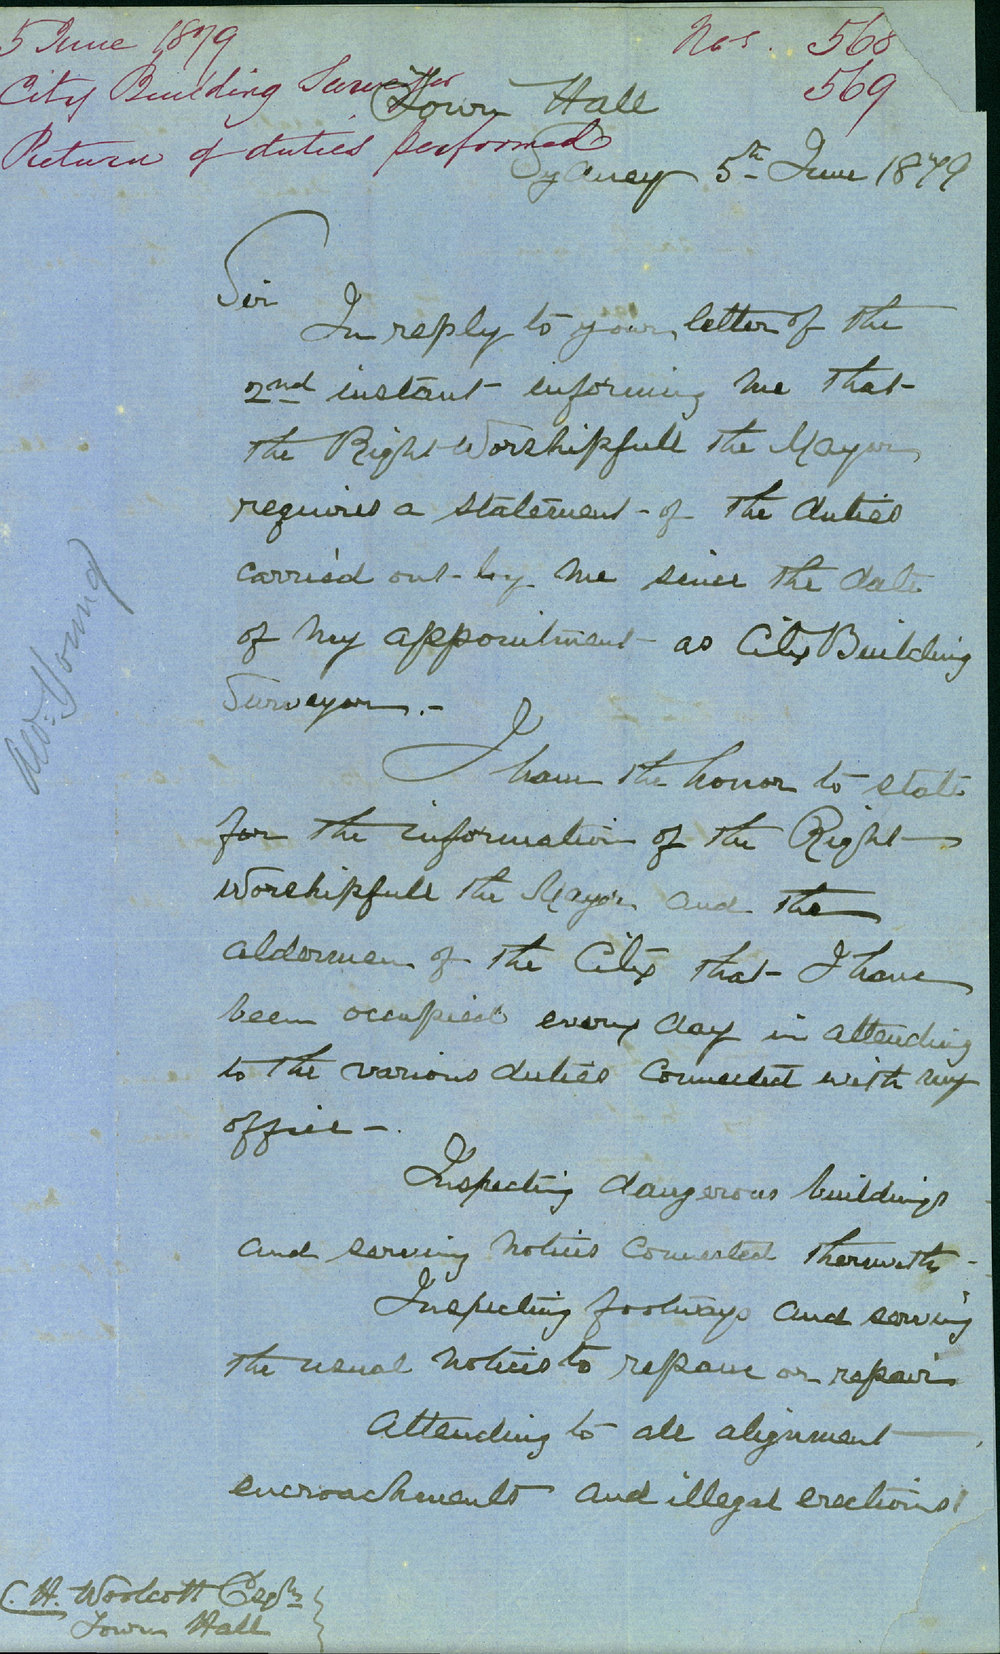 5 June 1879
Nos. 568
569
City Building Surveyor
Return of duties performed
Town Hall
Sydney 5th June 1879
Sir
In reply to your letter of the
2nd instant informing me that
the Right Worshipfull the Mayor
requires a statement of the duties
carried out by me since the date
of my appointment as City Building
Surveyor.-
I have the honor to state
for the information of the Right
Worshipfull the Mayor and the
aldermen of the City that I have
been occupied every day in attending
to the various duties connected with my
office-.
Inspecting dangerous buildings
and serving notices connected therewith-
Inspecting footways and serving
the usual notices to repave or repair
Attending to all alignment
encroachments and illegal erections
C. H. Woolcott Esqre
Town Hall
Ald. Young